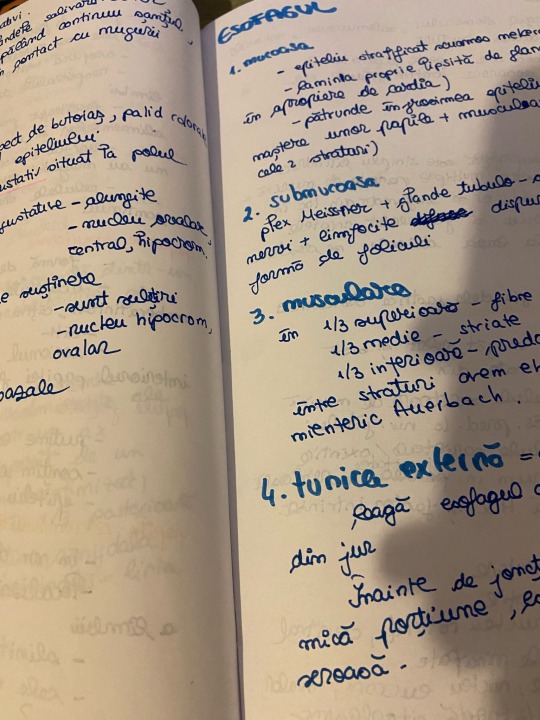 ativi.
salivar
făcând continuu șanțul,
n contact cu mugurii
pect de butoiaș, palid colorat
epiteliului.
ustativ situat la polul
gustative - alungite
- nucleu ovalar,
central, hipocrom.
e susținere
- sunt subțiri
- nucleu hipocrom,
ovalar
bazale
ESOFAGUL
1. mucoasa
- epiteliu stratificat scuamos
- lamina proprie lipsită de glan
în apropiere de cardia)
- pătrunde în grosimea epiteliu
naștere unor papile + musculoas
cele 2 straturi)
2. submucoasa
plex Meissner + glande tubulo-
nervi + limfocite dispu
formă de foliculi
3. musculara
în 1/3 superioară - fibre
1/3 medie - striate
1/3 inferioară - predo
între straturi avem
mienteric Auerbach.
4. tunica externă =
leagă esofagul
din jur
Înainte de joncț
mică porțiune,
seroasă.